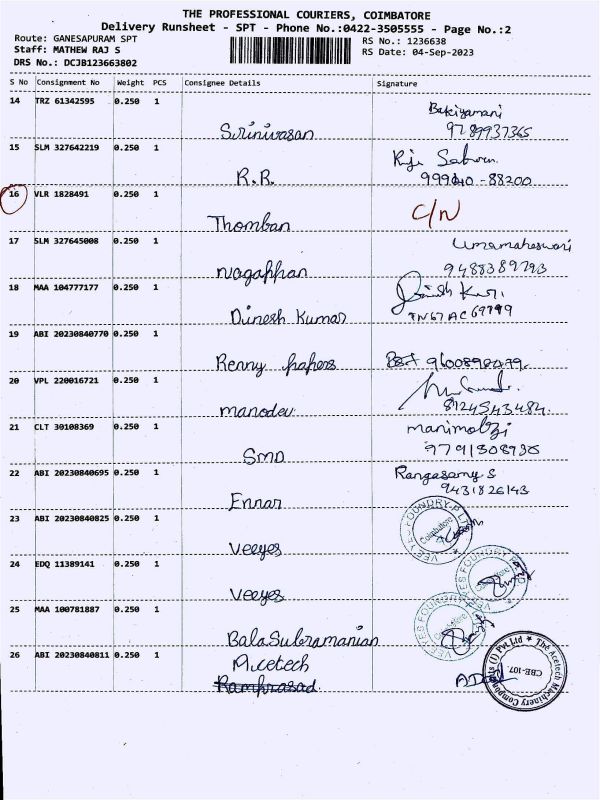 THE PROFESSIONAL COURIERS, COIMBATORE
Delivery Runsheet - SPT - Phone No.:0422-3505555 - Page No.:2
Route: GANESAPURAM SPT
RS No.: 1236638
Staff: MATHEW RAJ S
RS Date: 04-Sep-2023
DRS No.: DCJB123663802
S No Consignment No Weight PCS Consignee Details Signature
14 TRZ 61342595 0.250 1
Bakiyamani
Srinivasan 9789937365
15 SLM 327642219 0.250 1
R.R.
16 VLR 1828491 0.250 1
C/N
Thomban
17 SLM 327645008 0.250 1
Umamaheswari
Nagappan 9488389793
18 MAA 104777177 0.250 1
Dinesh Kumar
19 ABI 20230840770 0.250 1
Renny papers
20 VPL 220016721 0.250 1
manodev 8124543484
21 CLT 30108369 0.250 1
22 ABI 20230840695 0.250 1
Rangasamy S
9431826143
Ennar
23 ABI 20230840825 0.250 1
VEEYES FOUNDRY P LTD
Coimbatore
Veeyes
24 EDQ 11389141 0.250 1
Veeyes
25 MAA 100781887 0.250 1
Bala Subramanian
26 ABI 20230840811 0.250 1
Acetech
Ramprasad
The Acetech Machinery Components (I) Pvt.Ltd
CBE-107.